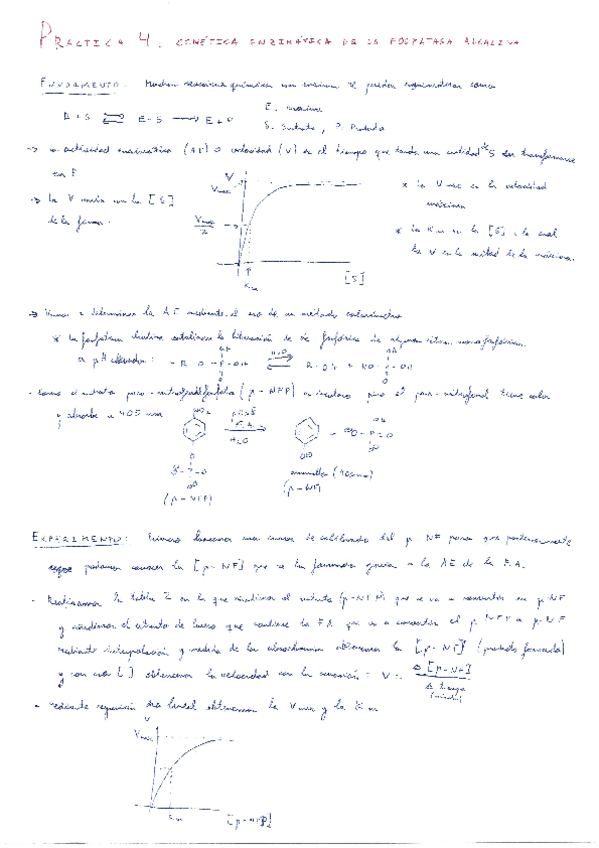 PRACTICA 4. CINÉTICA ENZIMÁTICA DE LA FOSFATASA ALCALINA
FUNDAMENTO: Muchas reacciones químicas con enzimas se pueden representar como
E + S ⇌ E-S → E + P
E. enzima
S. Sustrato, P. Producto
-> La actividad enzimática (AE) o velocidad (V) es el tiempo que tarda una cantidad S en transformarse
en P
-> la V varía con la [S]
de la forma:
V
Vmax
Vmax/2
Km
[S]
* la Vmax es la velocidad
máxima
* la Km es la [S] a la cual
la V es la mitad de la máxima.
-> Vamos a determinar la AE mediante el uso de un método colorimétrico
* la fosfatasa alcalina cataliza la liberación de ác fosfórico de algunos
a pH alcalino:
H2O
- Como el sustrato para-nitrofenilfosfato (p-NFP) es incoloro pero el para-nitrofenol tiene color
y absorbe a 405 nm
F.A
H2O
(p-NFP)
amarillo (405nm)
(p-NF)
EXPERIMENTO: Primero hacemos una curva de calibrado del p NF para que posteriormente
podamos conocer la [p-NF] que se ha formado gracias a la AE de la F.A.
- Realizamos la tabla 2 en la que añadimos el sustrato (p-NFP) que se va a convertir en p-NF
y añadimos el extracto de hueso que contiene la FA que va a convertir el p NFP a p-NF
mediante interpolación y medida de las absorbancias obtenemos la [p-NF] (producto formado)
y con esa [ ] obtenemos la velocidad con la ecuación: V = Δ [p-NF]
Δ tiempo
(minutos)
- Mediante regresión lineal obtenemos la Vmax y la Km
V
Vmax
Km
[p-NFP]